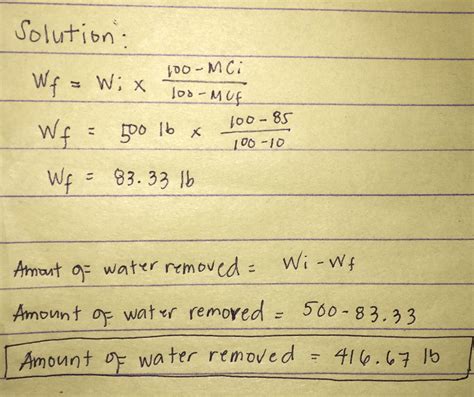 Solution:
Wf = Wi x 100-MCi / 100-MCf
Wf = 500 lb x 100-85 / 100-10
Wf = 83.33 lb
Amout of water removed = Wi-Wf
Amount of water removed = 500-83.33
Amount of water removed = 416.67 lb